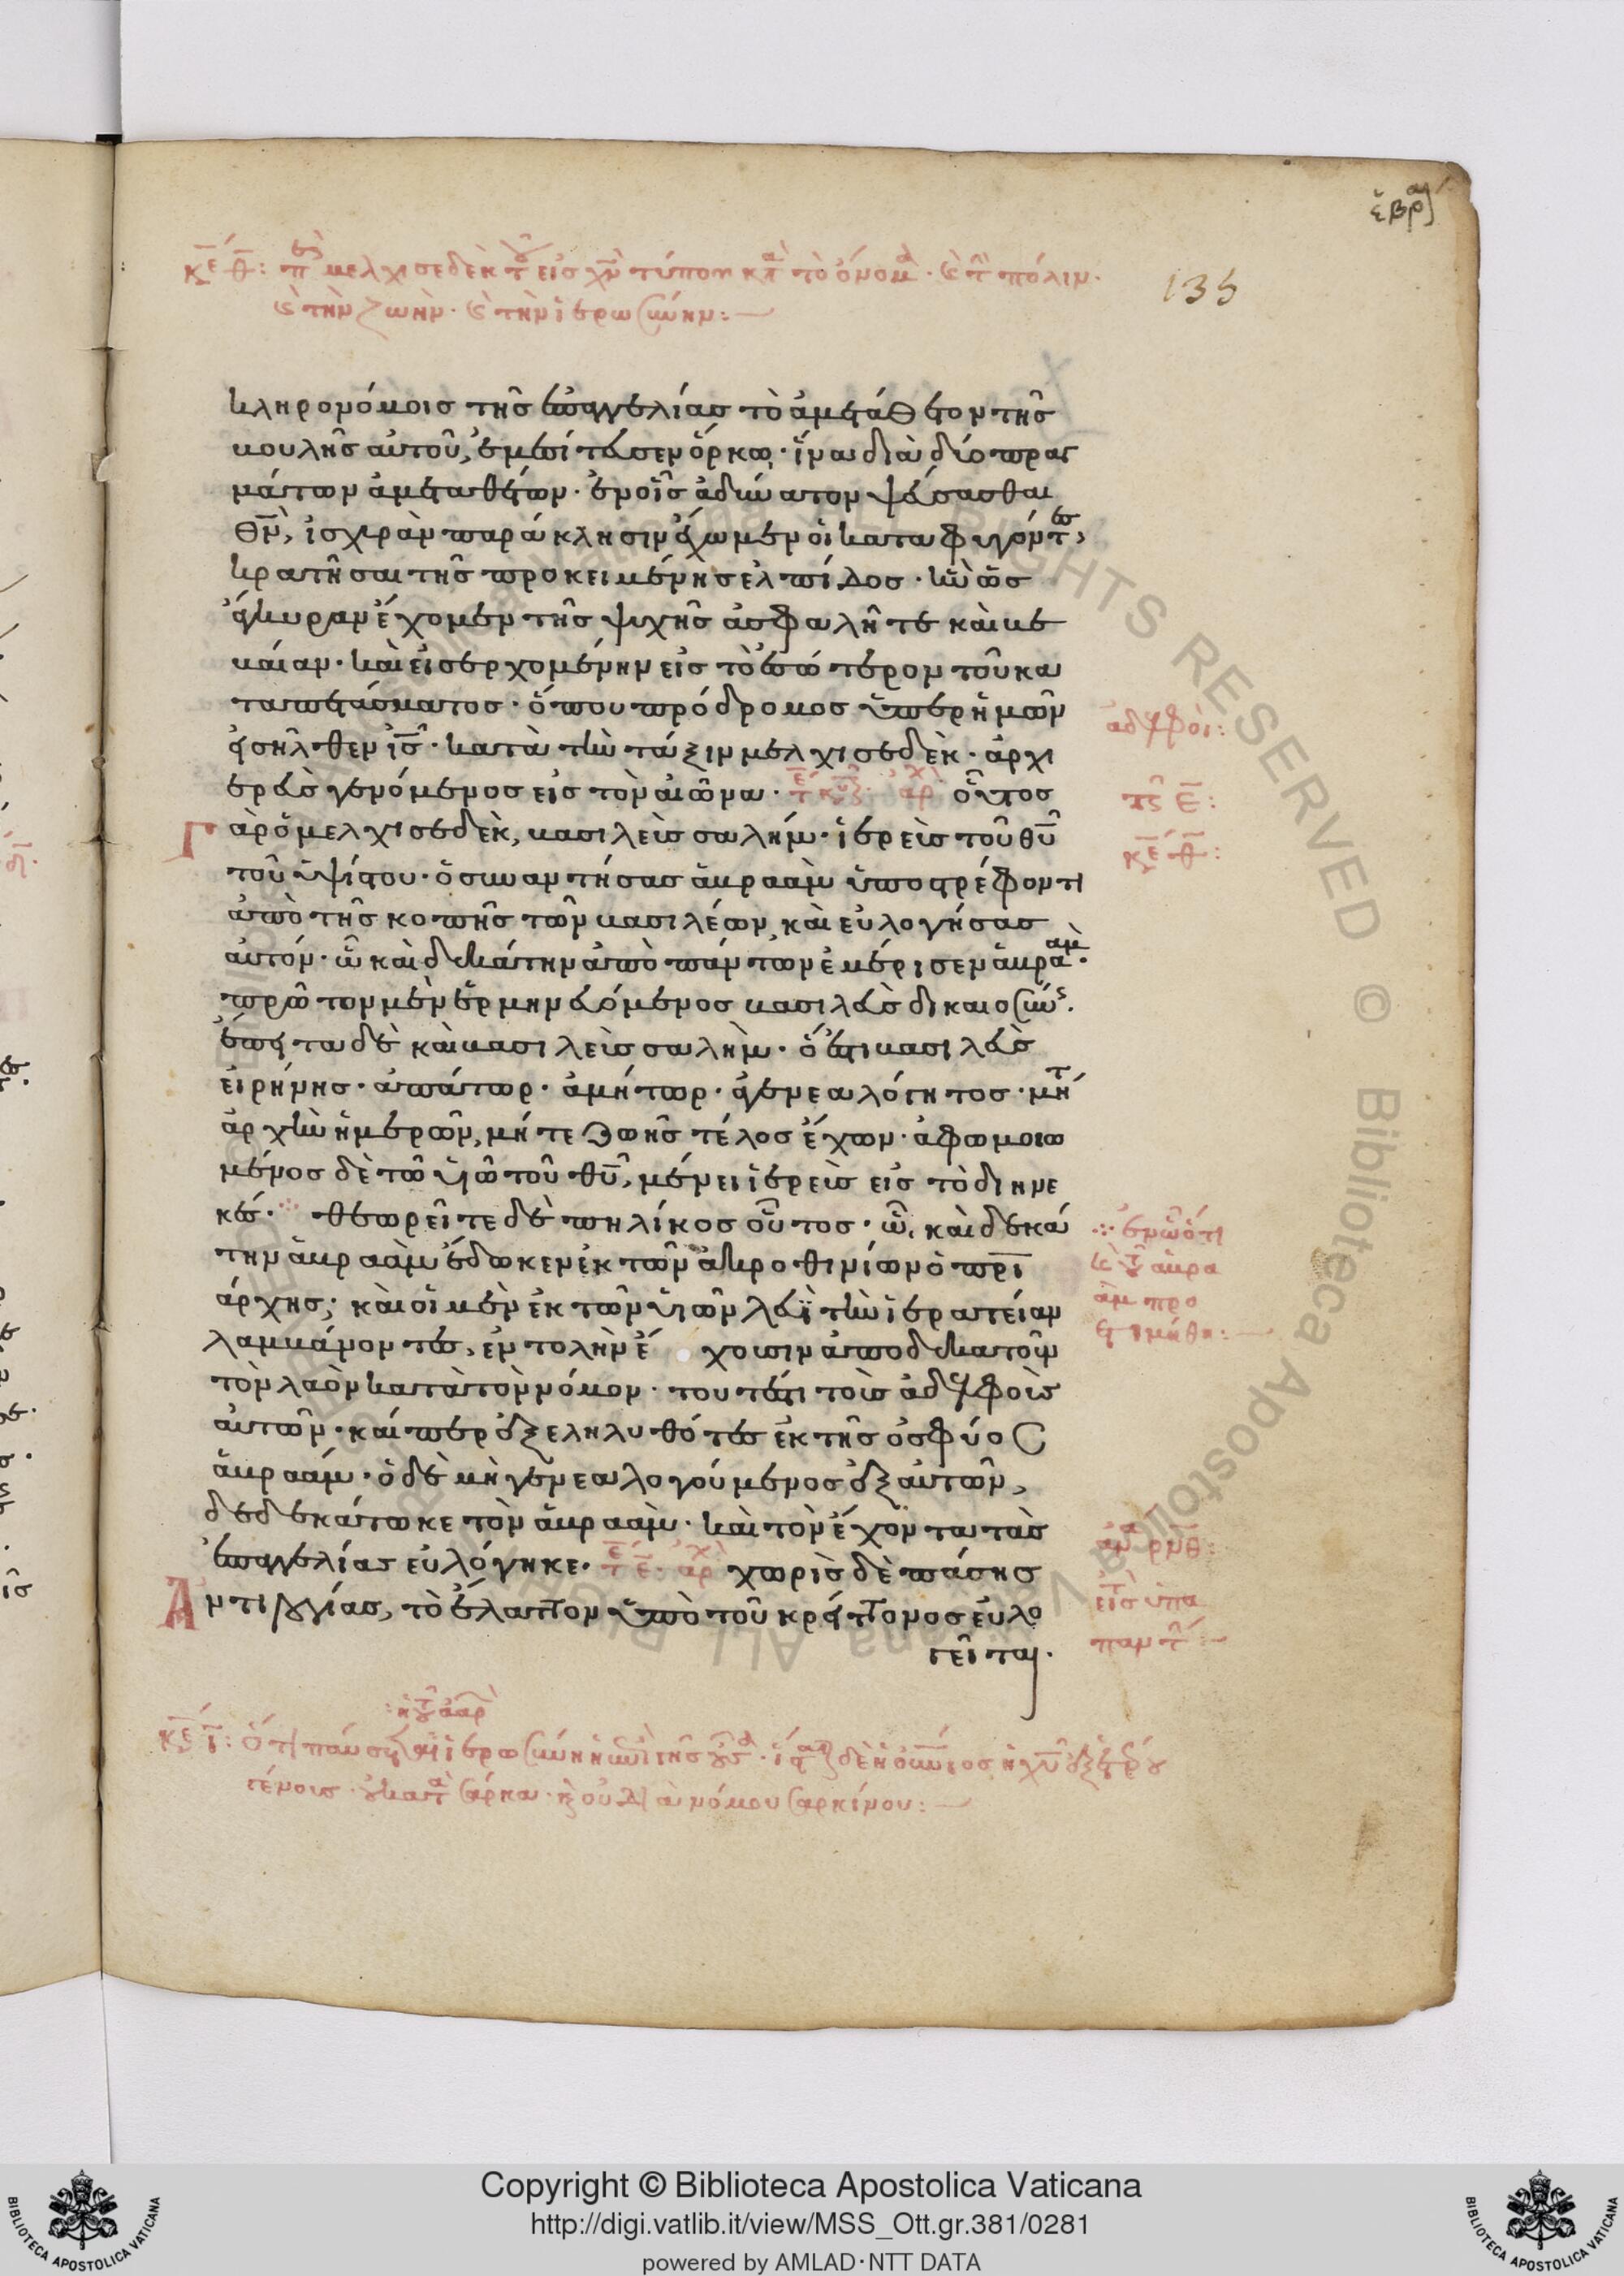 ἑβρ
135
κε θ: π μελχισεδὲκ τ εἰσ χν τύπον κτ τὸ ὄνομ · κ τ πόλιν·
κ τὴν ζωὴν · κ τὴν ἱερωσύνην:
κληρονόμοισ τῆσ ἐπαγγελίασ τὸ ἀμετάθετον τῆσ
βουλῆσ αὐτοῦ, ἐμεσίτευσεν ὅρκω · ἵνα διὰ δύο πραγ
μάτων ἀμεταθέτων · ἐν οἷσ ἀδύνατον ψεύσασθαι
θν, ἰσχυρὰν παράκλησιν ἔχωμεν οἱ καταφυγόντες,
κρατῆσαι τῆσ προκειμένησ ἐλπίδοσ · ἣν ὡσ
ἄγκυραν ἔχομεν τῆσ ψυχῆσ ἀσφαλῆ τε καὶ βε
βαίαν · καὶ εἰσερχομένην εἰσ τὸ ἐσώτερον τοῦ κα
ταπετάσματοσ · ὅπου πρόδρομοσ ὑπὲρ ἡμῶν
εἰσῆλθεν ισ · κατὰ τὴν τάξιν μελχισεδὲκ · ἀρχι
ερεὺσ γενόμενοσ εἰσ τὸν αἰῶνα · οὗτοσ
Γὰρ ὁ μελχισεδὲκ, βασιλεὺσ σαλήμ · ἱερεὺσ τοῦ θυ
τοῦ ὑψίστου · ὁ συναντήσασ ἀβραὰμ ὑποστρέφοντι
ἀπὸ τῆσ κοπῆσ τῶν βασιλέων καὶ εὐλογήσασ
αὐτόν · ὧ καὶ δεκάτην ἀπὸ πάντων ἐμέρισεν ἀβραάμ·
πρῶτον μὲν ἑρμηνευόμενοσ βασιλεὺσ δικαιοσύν·
ἔπειτα δὲ καὶ βασιλεὺσ σαλὴμ · ὅ ἐστι βασιλεὺσ
εἰρήνησ · ἀπάτωρ · ἀμήτωρ · ἀγενεαλόγητοσ · μήτ
ἀρχὴν ἡμερῶν, μήτε ζωῆσ τέλοσ ἔχων · ἀφωμοιω
μένοσ δὲ τῶ υἱῶ τοῦ θυ, μένει ἱερεὺσ εἰσ τὸ διηνε
κέσ · θεωρεῖτε δὲ πηλίκοσ οὗτοσ · ὧ, καὶ δεκά
την ἀβραὰμ ἔδωκεν ἐκ τῶν ἀκροθινίων ὁ πρι
άρχησ; καὶ οἱ μὲν ἐκ τῶν υἱῶν λευὶ τὴν ἱερατείαν
λαμβάνοντεσ, ἐντολὴν ἔχουσιν ἀποδεκατοῦν
τὸν λαὸν κατὰ τὸν νόμον · τουτέστι τοὺσ ἀδελφοὺσ
αὐτῶν · καίπερ ἐξεληλυθότασ ἐκ τῆσ ὀσφύοσ
ἀβραάμ · ὁ δὲ μὴ γενεαλογούμενοσ ἐξ αὐτῶν,
δεδεκάτωκε τὸν ἀβραὰμ · καὶ τὸν ἔχοντα τὰσ
ἐπαγγελίασ εὐλόγηκε · χωρὶσ δὲ πάσησ
Ἀντιλογίασ, τὸ ἔλαττον ὑπὸ τοῦ κρείττονοσ εὐλο
γεῖται.
ἀδελφοί:
τς ε:
κε θ:
ἐν ὧ ὅτι
κ τ ἀβρα
ὰμ προ
ετιμήθη:
αν ρνθ:
εἰσ ὑπα
παντ
Copyright © Biblioteca Apostolica Vaticana
http://digi.vatlib.it/view/MSS_Ott.gr.381/0281
powered by AMLAD·NTT DATA
BIBLIOTECA APOSTOLICA VATICANA
BIBLIOTECA APOSTOLICA VATICANA